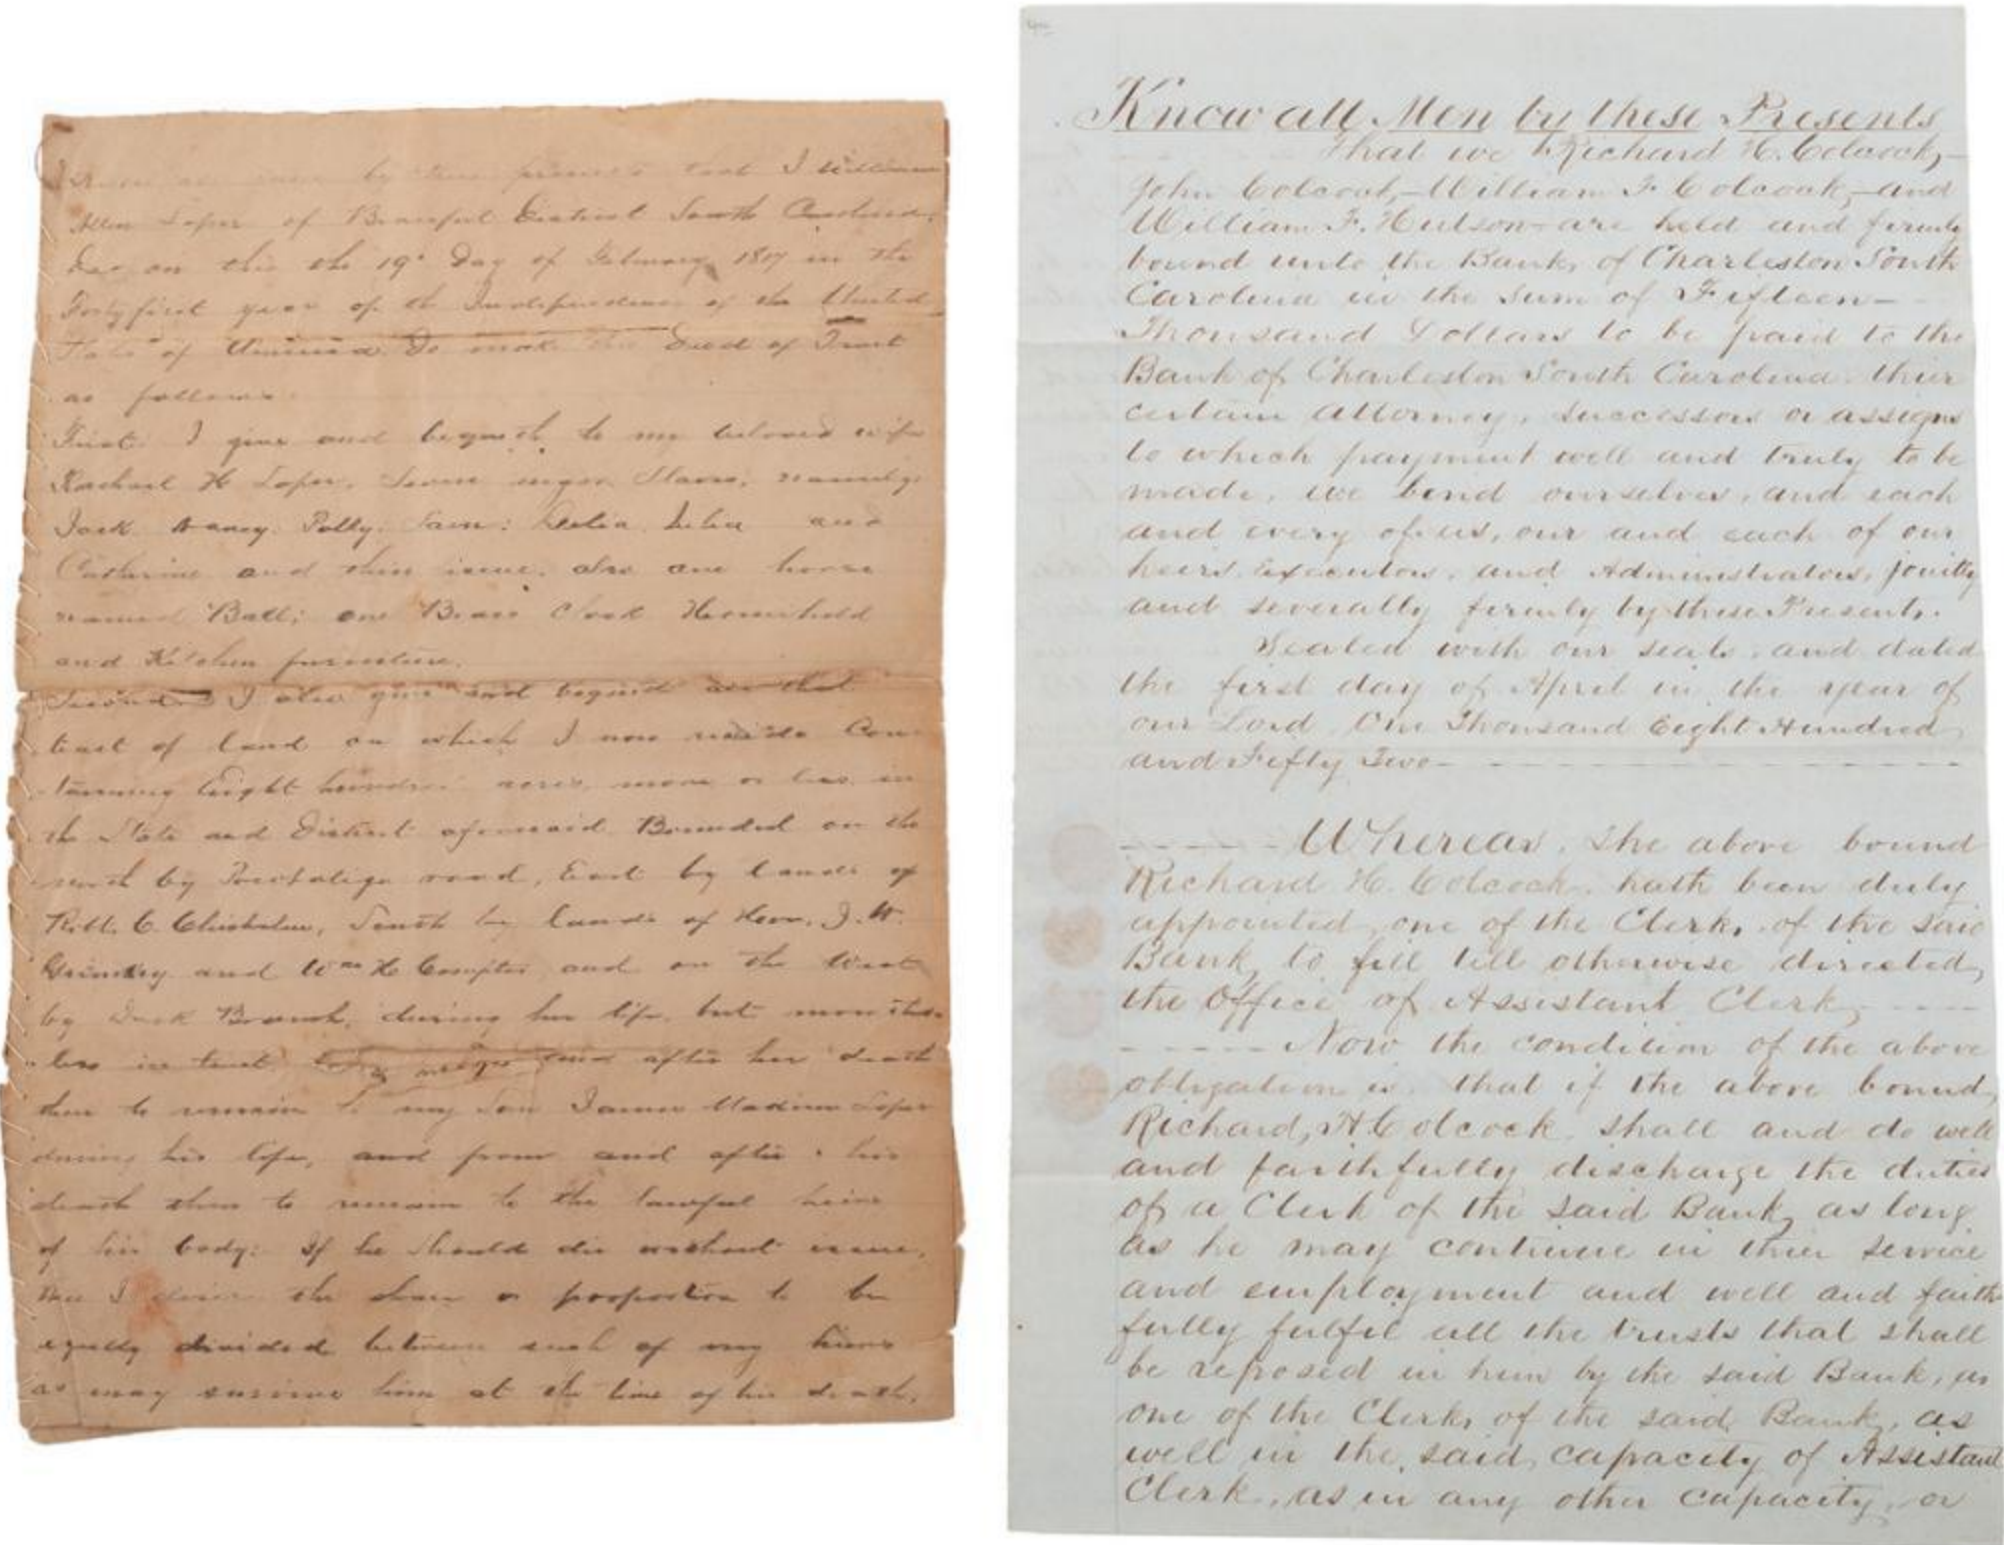 Know all men by these presents that I William
Allen Loper of Beaufort District South Carolina,
on this the 19th Day of February 1817 in the
Forty first year of the Independence of the United
State of America Do make this Deed of Trust
as follows
First. I give and bequeath to my beloved wife
Rachael H Loper, Seven negro Slaves, namely;
Jack Nancy. Polly. Sam: Delia and
Catharine and their issue, also one horse
named Ball; one Brass Clock Household
and Kitchen furniture.
Second I also give and bequeath all that
tract of land on which I now reside Con-
taining Eight hundred acres, more or less in
the State and District aforesaid Bounded on the
north by Pocotaligo road, East by lands of
Robt. C. Chisholm, South by lands of Hon. J. W.
Grimkey and Wm H Compter and on the West
by Duck Branch, during her life, but
in trust after her death
then to remain to my Son James Madison Loper
during his life, and from and after his
death then to remain to the lawful heirs
of his body: If he should die without issue,
then I desire the share or proportion to be
equally divided between such of my heirs
as may survive him at the time of his death.
Know all Men by these Presents
That we Richard H. Colcock,
John Colcock, William F. Colcock, and
William F. Hutson are held and firmly
bound unto the Bank of Charleston South
Carolina in the Sum of Fifteen-
Thousand Dollars to be paid to the
Bank of Charleston South Carolina. thier
certain attorney, successors or assigns
to which payment well and truly to be
made, we bind ourselves, and each
and every of us, our and each of our
heirs, Executors, and Administrators, jointly
and severally firmly by these Presents.
Sealed with our seals, and dated
the first day of April in the year of
our Lord One Thousand Eight Hundred
and Fifty Two
Whereas, the above bound
Richard H. Colcock hath been duly
appointed one of the Clerks of the said
Bank, to fill till otherwise directed,
the Office of Assistant Clerk,
Now the condition of the above
obligation is that if the above bound
Richard, H Colcock shall and do well
and faithfully discharge the duties
of a Clerk of the said Bank, as long
as he may continue in thier service
and employment and well and faith
fully fulfil all the trusts that shall
be reposed in him by the said Bank, as
one of the Clerks of the said Bank, as
well in the said capacity of Assistant
Clerk, as in any other capacity, or